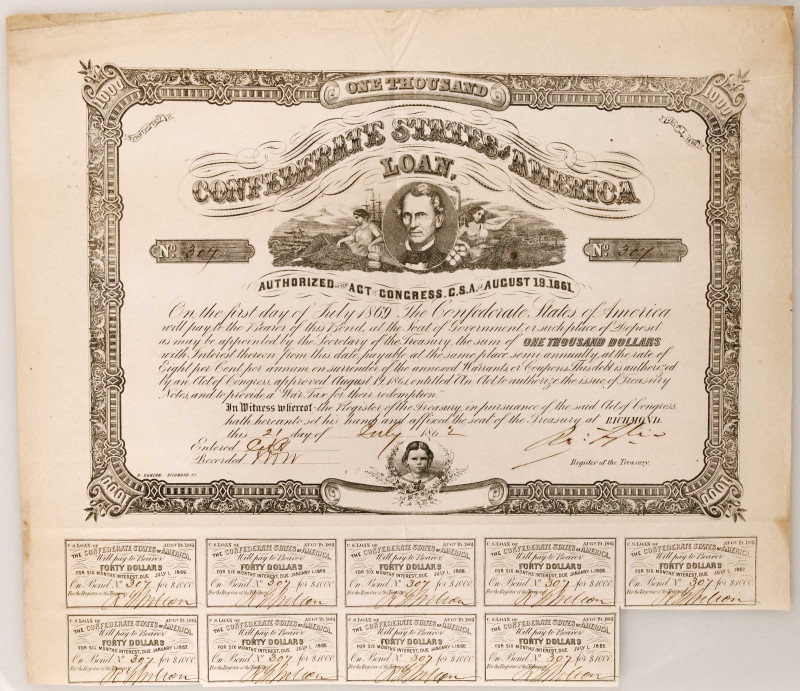 1000
ONE THOUSAND
1000
CONFEDERATE STATES OF AMERICA
LOAN,
No. 307
No. 307
AUTHORIZED BY THE ACT OF CONGRESS, C.S.A. OF AUGUST 19.1861.
On the first day of July 1869 The Confederate States of America
will pay to the Bearer of this Bond, at the Seat of Government or such place of Deposit
as may be appointed by the Secretary of the Treasury, the sum of ONE THOUSAND DOLLARS
with Interest thereon from this date, payable at the same place semi annually, at the rate of
Eight per Cent. per annum, on surrender of the annexed Warrants or Coupons. This debt is authorized
by an Act of Congress, approved August 19, 1861, entitled An Act to authorize the issue of Treasury
Notes, and to provide a War Tax for their redemption.
In Witness whereof the Register of the Treasury, in pursuance of the said Act of Congress
hath hereunto set his hand and affixed the seal of the Treasury at RICHMOND.
this 21 day of July 1862
Entered
Recorded
Register of the Treasury
E. DUNCAN. RICHMOND VA.
1000
1000
C.S. LOAN OF AUGT 19, 1861 C.S. LOAN OF AUGT 19, 1861 C.S. LOAN OF AUGT 19, 1861 C.S. LOAN OF AUGT 19, 1861 C.S. LOAN OF AUGT 19, 1861
THE CONFEDERATE STATES OF AMERICA, THE CONFEDERATE STATES OF AMERICA, THE CONFEDERATE STATES OF AMERICA, THE CONFEDERATE STATES OF AMERICA, THE CONFEDERATE STATES OF AMERICA,
Will pay to Bearer Will pay to Bearer Will pay to Bearer Will pay to Bearer Will pay to Bearer
FORTY DOLLARS FORTY DOLLARS FORTY DOLLARS FORTY DOLLARS FORTY DOLLARS
FOR SIX MONTHS INTEREST, DUE JULY 1, FOR SIX MONTHS INTEREST, DUE JANUARY 1, FOR SIX MONTHS INTEREST, DUE JULY 1, FOR SIX MONTHS INTEREST, DUE JANUARY 1, FOR SIX MONTHS INTEREST, DUE JULY 1,
On Bond No. 307 for $1000 On Bond No. 307 for $1000 On Bond No. 307 for $1000 On Bond No. 307 for $1000 On Bond No. 307 for $1000
For the Register of the Treasury For the Register of the Treasury For the Register of the Treasury For the Register of the Treasury For the Register of the Treasury
C.S. LOAN OF AUGT 19, 1861 C.S. LOAN OF AUGT 19, 1861 C.S. LOAN OF AUGT 19, 1861 C.S. LOAN OF AUGT 19, 1861
THE CONFEDERATE STATES OF AMERICA, THE CONFEDERATE STATES OF AMERICA, THE CONFEDERATE STATES OF AMERICA, THE CONFEDERATE STATES OF AMERICA,
Will pay to Bearer Will pay to Bearer Will pay to Bearer Will pay to Bearer
FORTY DOLLARS FORTY DOLLARS FORTY DOLLARS FORTY DOLLARS
FOR SIX MONTHS INTEREST, DUE JANUARY 1, FOR SIX MONTHS INTEREST, DUE JULY 1, FOR SIX MONTHS INTEREST, DUE JANUARY 1, FOR SIX MONTHS INTEREST, DUE JULY 1,
On Bond No. 307 for $1000 On Bond No. 307 for $1000 On Bond No. 307 for $1000 On Bond No. 307 for $1000
For the Register of the Treasury For the Register of the Treasury For the Register of the Treasury For the Register of the Treasury